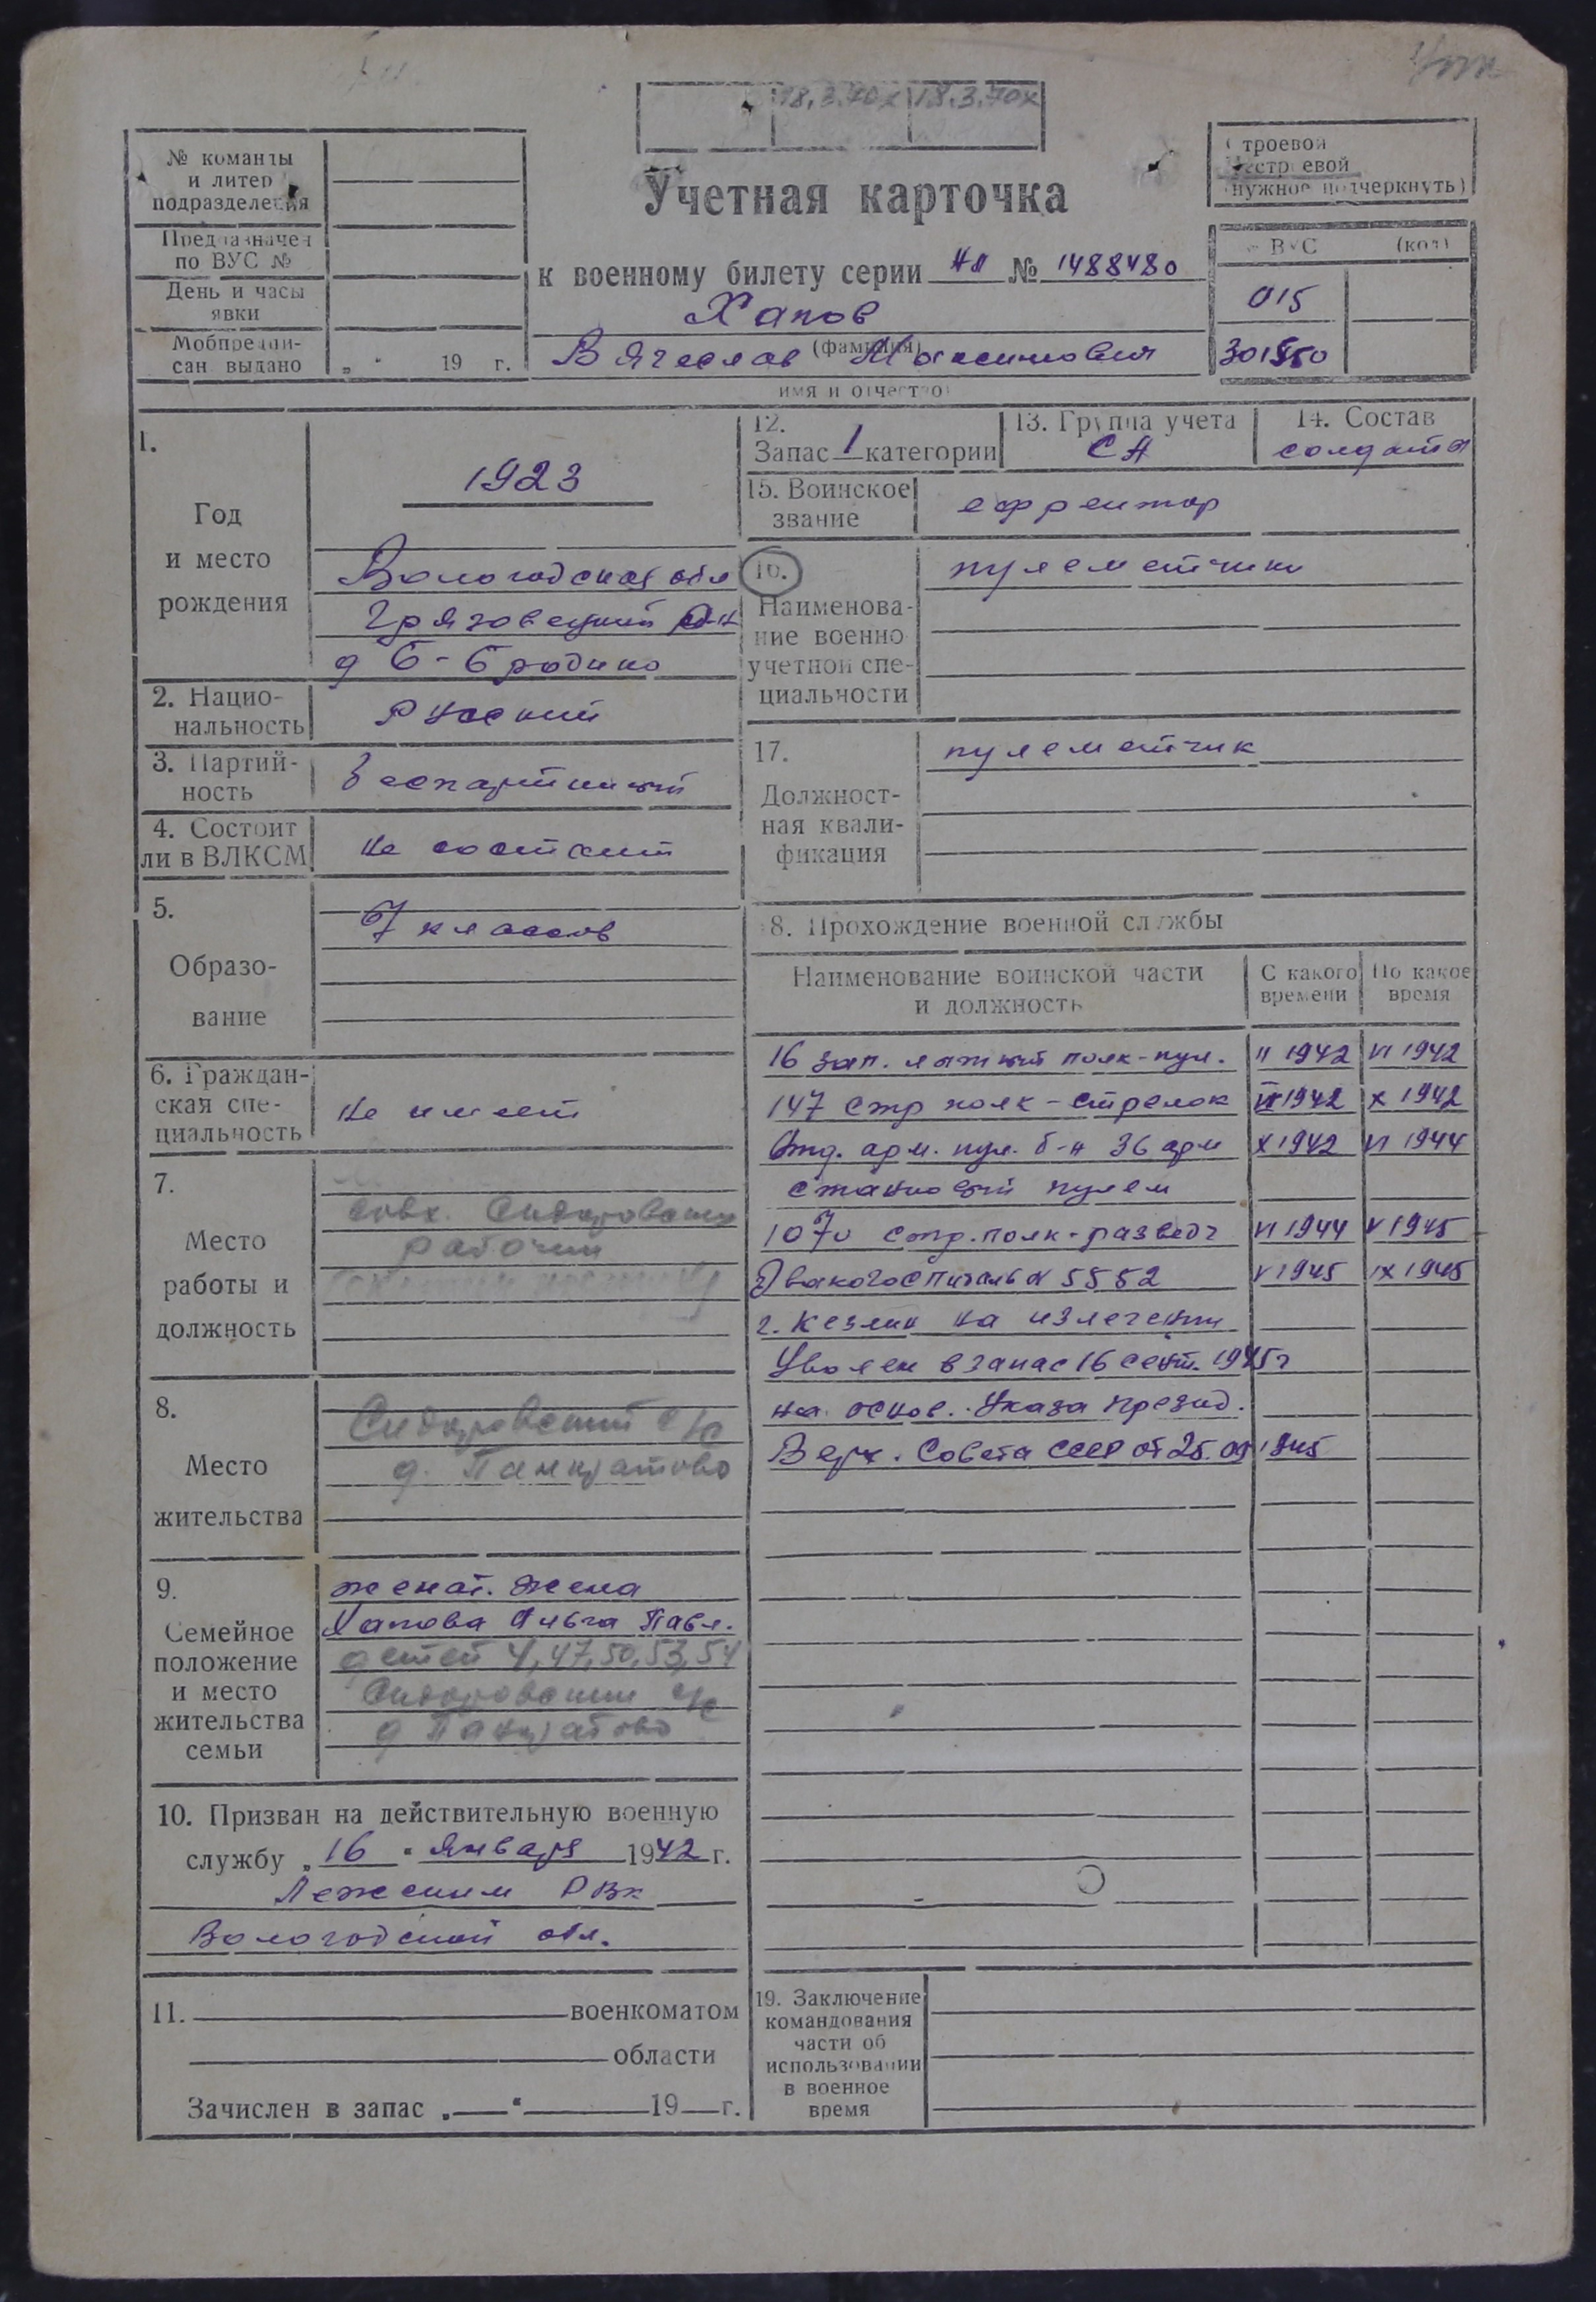 18.3.70х 18.3.70х
№ команды
и литер
подразделения
Предназначен
по ВУС №
День и часы
явки
Мобпредпи-
сан выдано „ " 19 г.
Учетная карточка
к военному билету серии НЛ № 1488480
Хапов
(фамилия)
Вячеслав Максимович
имя и отчество
Строевой
Нестроевой
(нужное подчеркнуть)
ВУС (код)
015
301550
1.
Год
и место
рождения
1923
Вологодская обл
Грязовецкий р-н
д Б-Бродино
2. Нацио-
нальность
Русский
3. Партий-
ность
беспартийный
4. Состоит
ли в ВЛКСМ
не состоит
5.
Образо-
вание
7 классов
6. Граждан-
ская спе-
циальность
не имеет
7.
Место
работы и
должность
совх. Сидоровский
рабочий
8.
Место
жительства
Сидоровский с/с
д. Панкратово
9.
Семейное
положение
и место
жительства
семьи
женат. жена
Хапова Павл.
детей 4, 47, 50, 53, 54
Сидоровский с/с
д Панкратово
10. Призван на действительную военную
службу „16" января 1942 г.
Лежским РВК
Вологодской обл.
11. военкоматом
области
Зачислен в запас „ " 19 г.
12.
Запас 1 категории
13. Группа учета
СА
14. Состав
солдаты
15. Воинское
звание
ефрейтор
16.
Наименова-
ние военно
учетной спе-
циальности
пулеметчики
17.
Должност-
ная квали-
фикация
пулеметчик
18. Прохождение военной службы
Наименование воинской части
и должность
С какого
времени
По какое
время
16 зап. лыжный полк-пул. II 1942 VI 1942
147 стр полк-стрелок VI 1942 X 1942
Отд. арм. пул. б-н 36 арм X 1942 VI 1944
станковый пулем
1070 стр. полк-развед VI 1944 V 1945
Эвакогоспиталь № 5552 V 1945 IX 1945
на излечении
Уволен в запас 16 сент. 1945г
на основ. Указа презид.
Верх. Совета СССР от 25.09 1945
19. Заключение
командования
части об
использовании
в военное
время